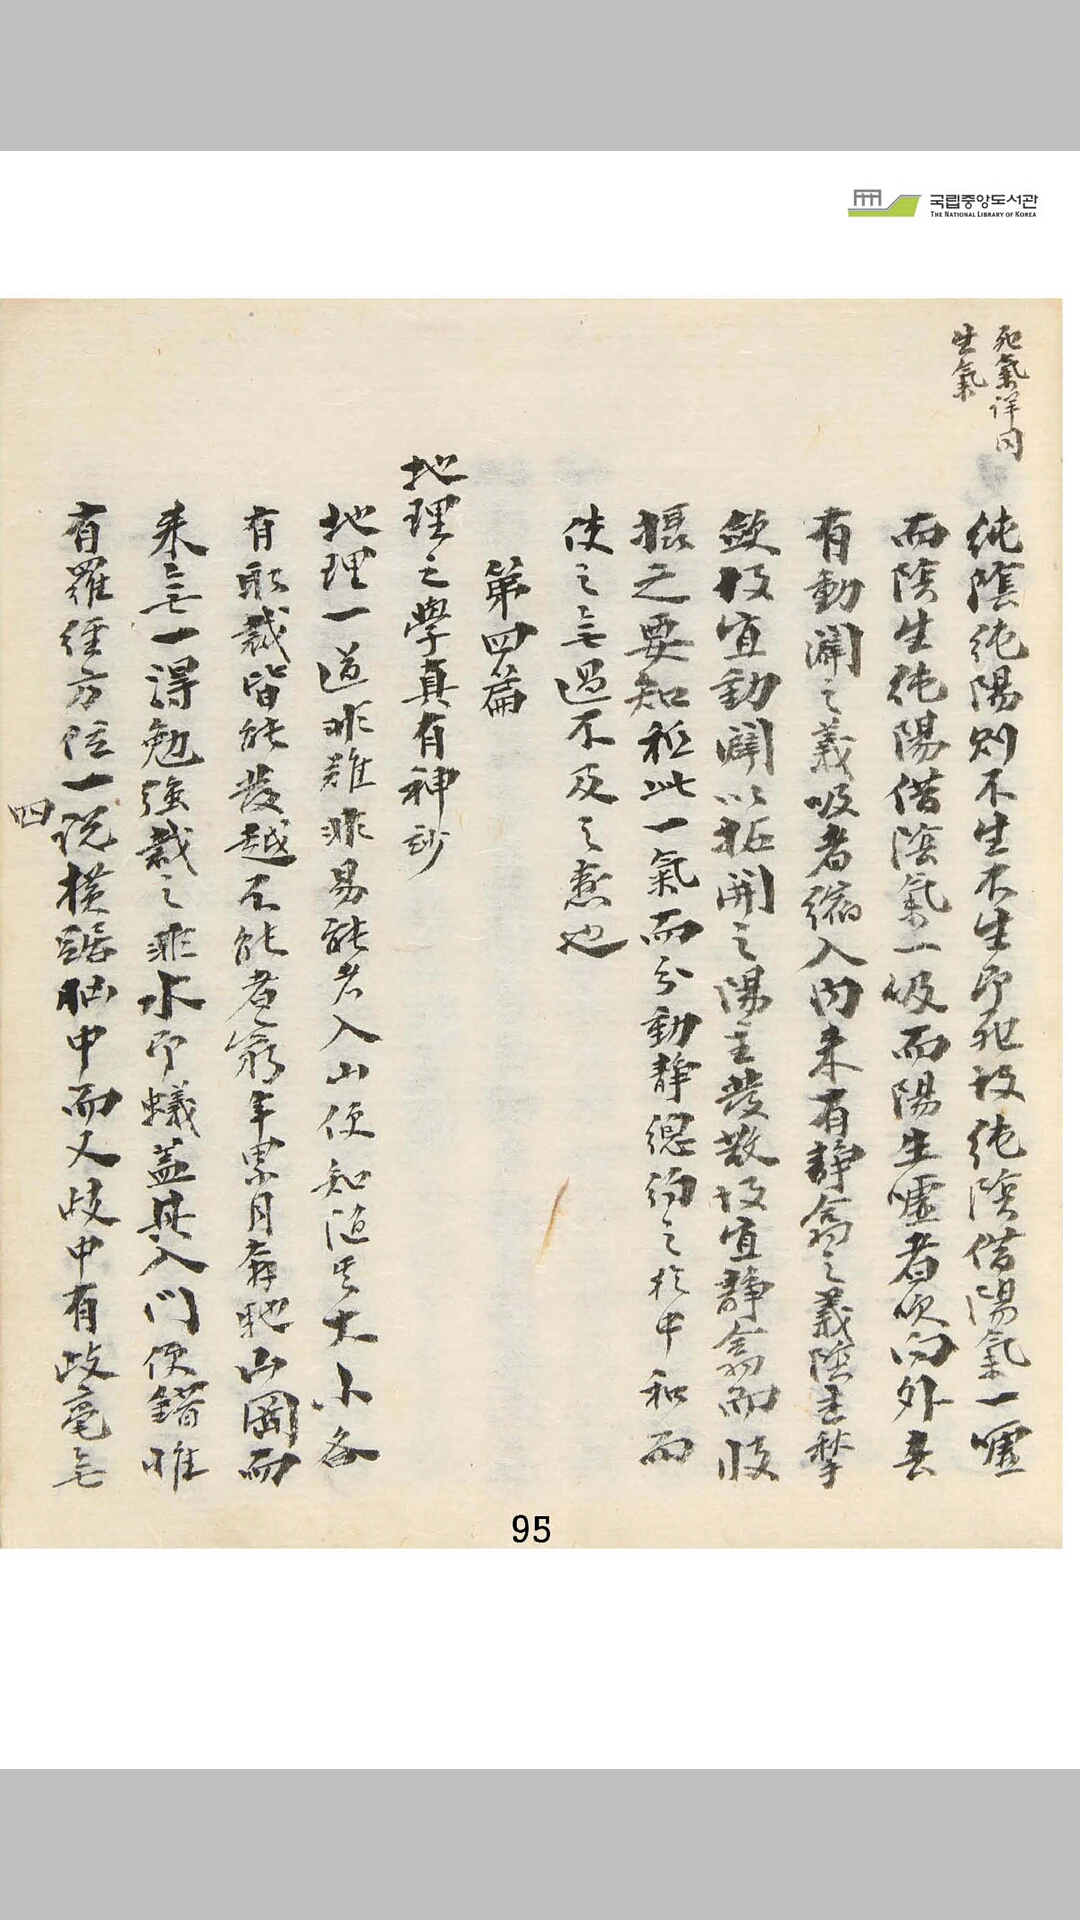 국립중앙도서관
THE NATIONAL LIBRARY OF KOREA
死氣詳同
生氣
純陰純陽則不生不生即死故純陰借陽氣一噓
而陰生純陽借陰氣一吸而陽生噓者吹向外去
有動闢之義吸者縮入內来有靜翕之義陰主
斂故宜動闢以拓開之陽主發散故宜靜翕而收
之要知秪此一氣而分動靜總約之於中和而
使之无過不及之愆也
第四篇
地理之學真有神妙
地理一道非難非易能者入山便知隨其大小各
有取裁皆能發越不能者窮年累月奔馳山岡而
来无一得勉強裁之非水即蟻盖其入門便錯惟
有羅經方位一說橫踞胸中而又歧中有歧毫无
四
95